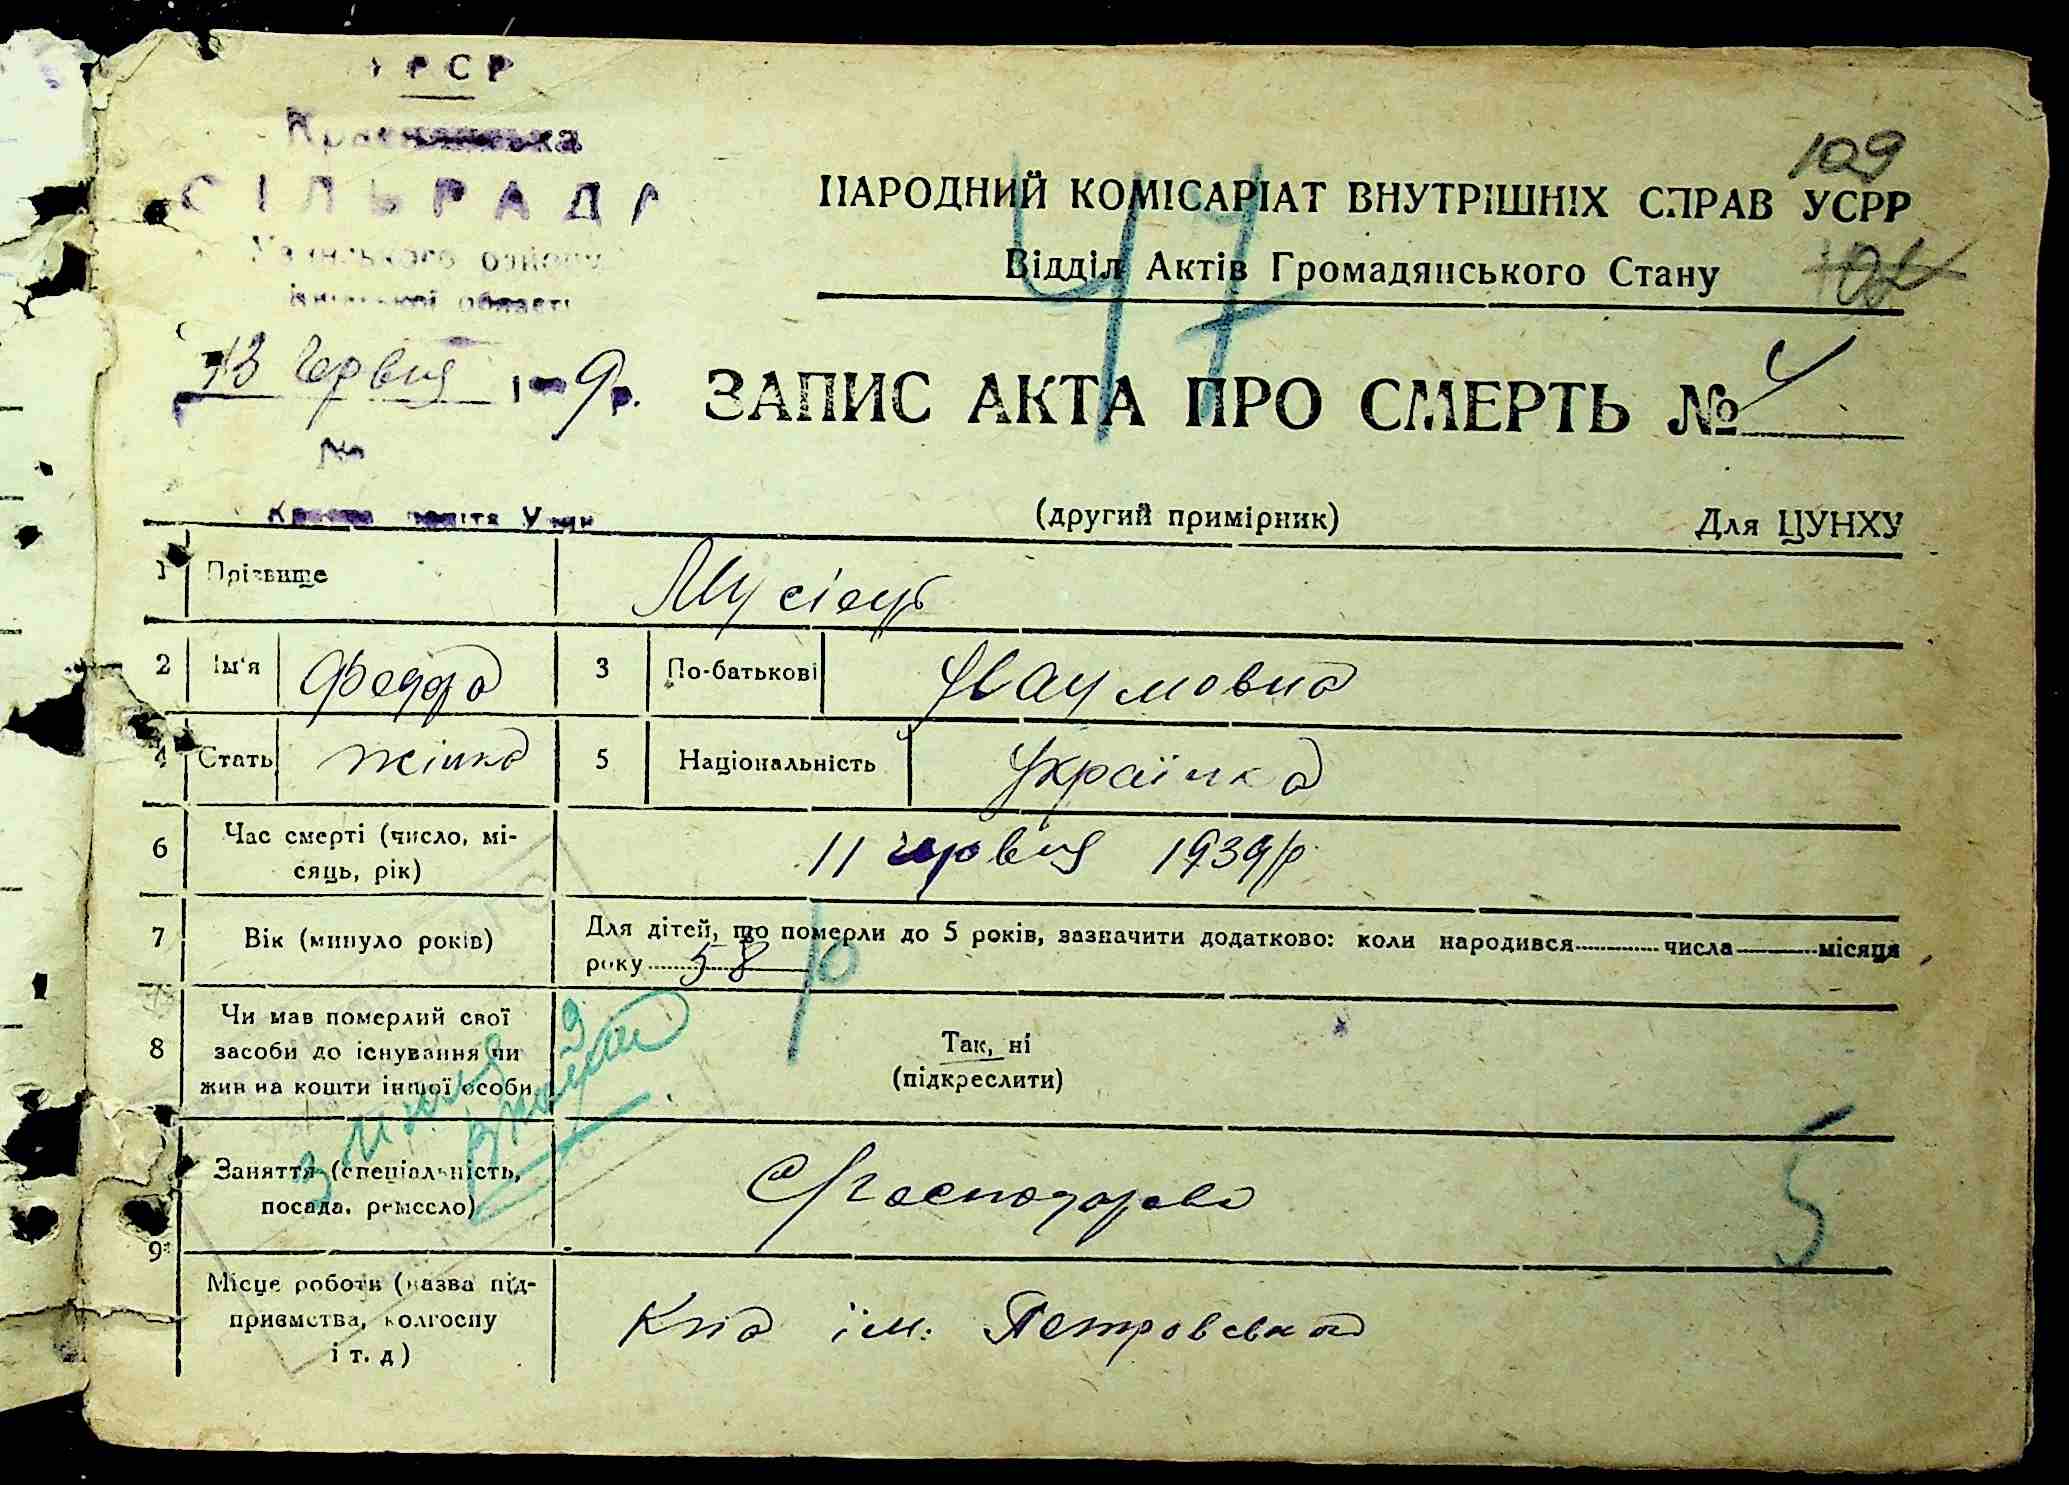 УРСР
СІЛЬРАДА
району
області
109
НАРОДНИЙ КОМІСАРІАТ ВНУТРІШНІХ СПРАВ УСРР
Відділ Актів Громадянського Стану
47
13 червня 1 9 р.
№
ЗАПИС АКТА ПРО СМЕРТЬ № 4
(другий примірник)
Для ЦУНХУ
1 Прізвище
2 Ім'я Федора 3 По-батькові Наумовна
4 Стать жінка 5 Національність Українка
6 Час смерті (число, мі-
сяць, рік) 11 червня 1939 р.
7 Вік (минуло років) Для дітей, що померли до 5 років, зазначити додатково: коли народився числа місяця
року 58
8 Чи мав померлий свої
засоби до існування чи
жив на кошти іншої особи
Так, ні
(підкреслити)
9 Заняття (спеціальність,
посада, ремесло)
5
Місце роботи (назва під-
приємства, колгоспу
і т. д) ім. Петровського